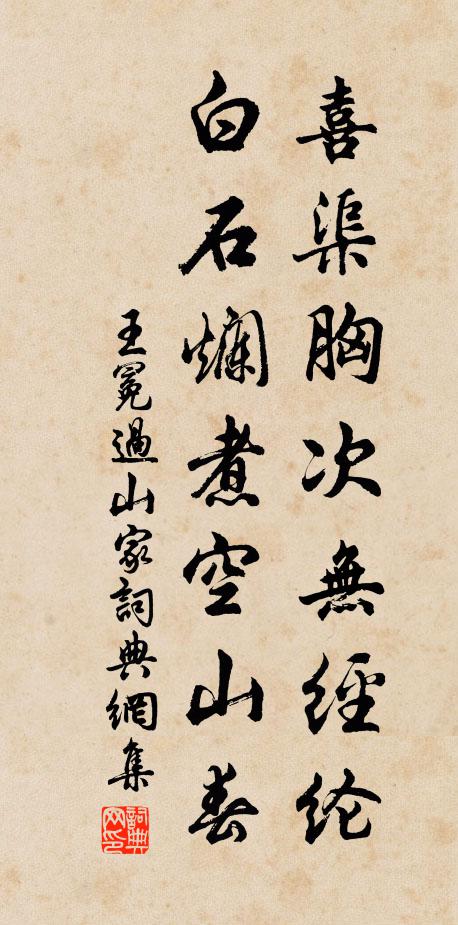 喜渠胸次無經纶
白石爛煮空山春
王冕過山家詞典網集
詞典网印